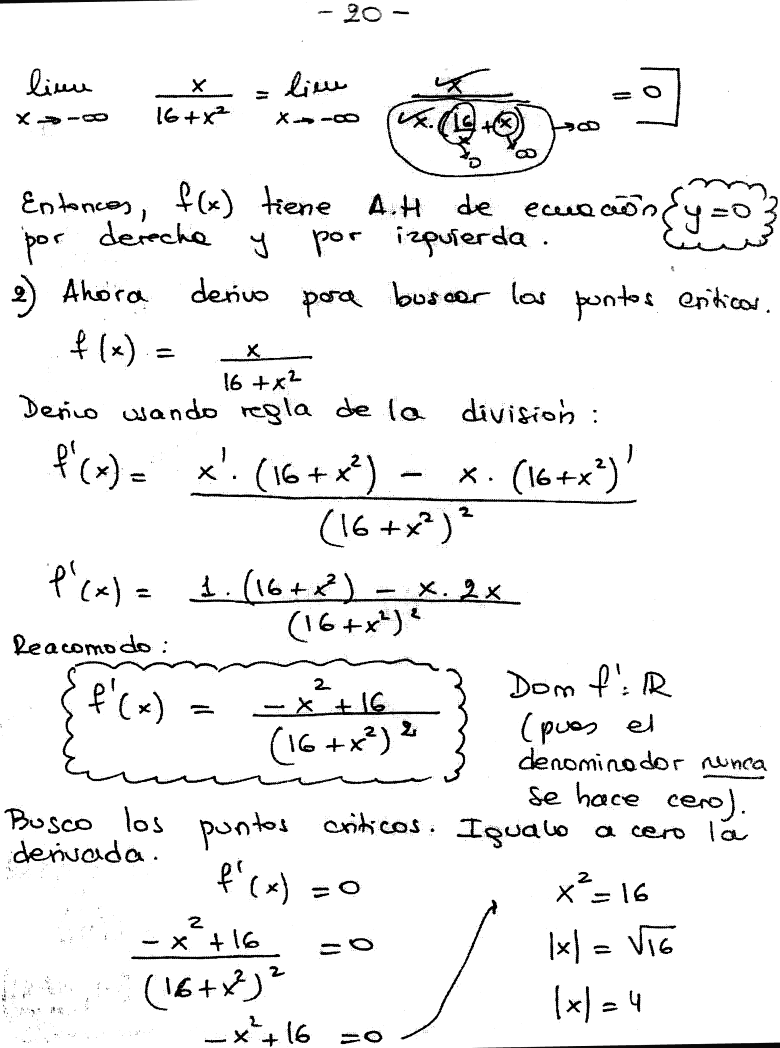 - 20 -
lim x→-∞ x/(16+x²) = lim x→-∞ x/(x·(16/x + x)) = 0
→0 →∞ →∞
Entonces, f(x) tiene A.H de ecuación y=0
por derecha y por izquierda.
2) Ahora derivo para buscar los puntos críticos.
f(x) = x/(16+x²)
Derivo usando regla de la división:
f'(x) = (x'·(16+x²) - x·(16+x²)')/(16+x²)²
f'(x) = (1·(16+x²) - x·2x)/(16+x²)²
Reacomodo:
f'(x) = (-x²+16)/(16+x²)²
Dom f': ℝ
(pues el
denominador nunca
se hace cero).
Busco los puntos críticos. Igualo a cero la
derivada.
f'(x) = 0
(-x²+16)/(16+x²)² = 0
-x²+16 = 0
x² = 16
|x| = √16
|x| = 4